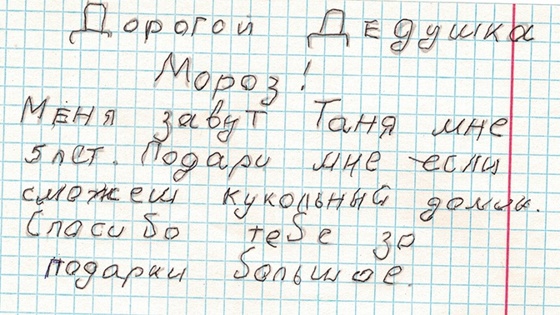 Дорогой Дедушка
Мороз!
Меня завут Таня мне
5 лет. Подари мне если
сможеш кукольный домик.
Спасибо тебе за
подарки большое.